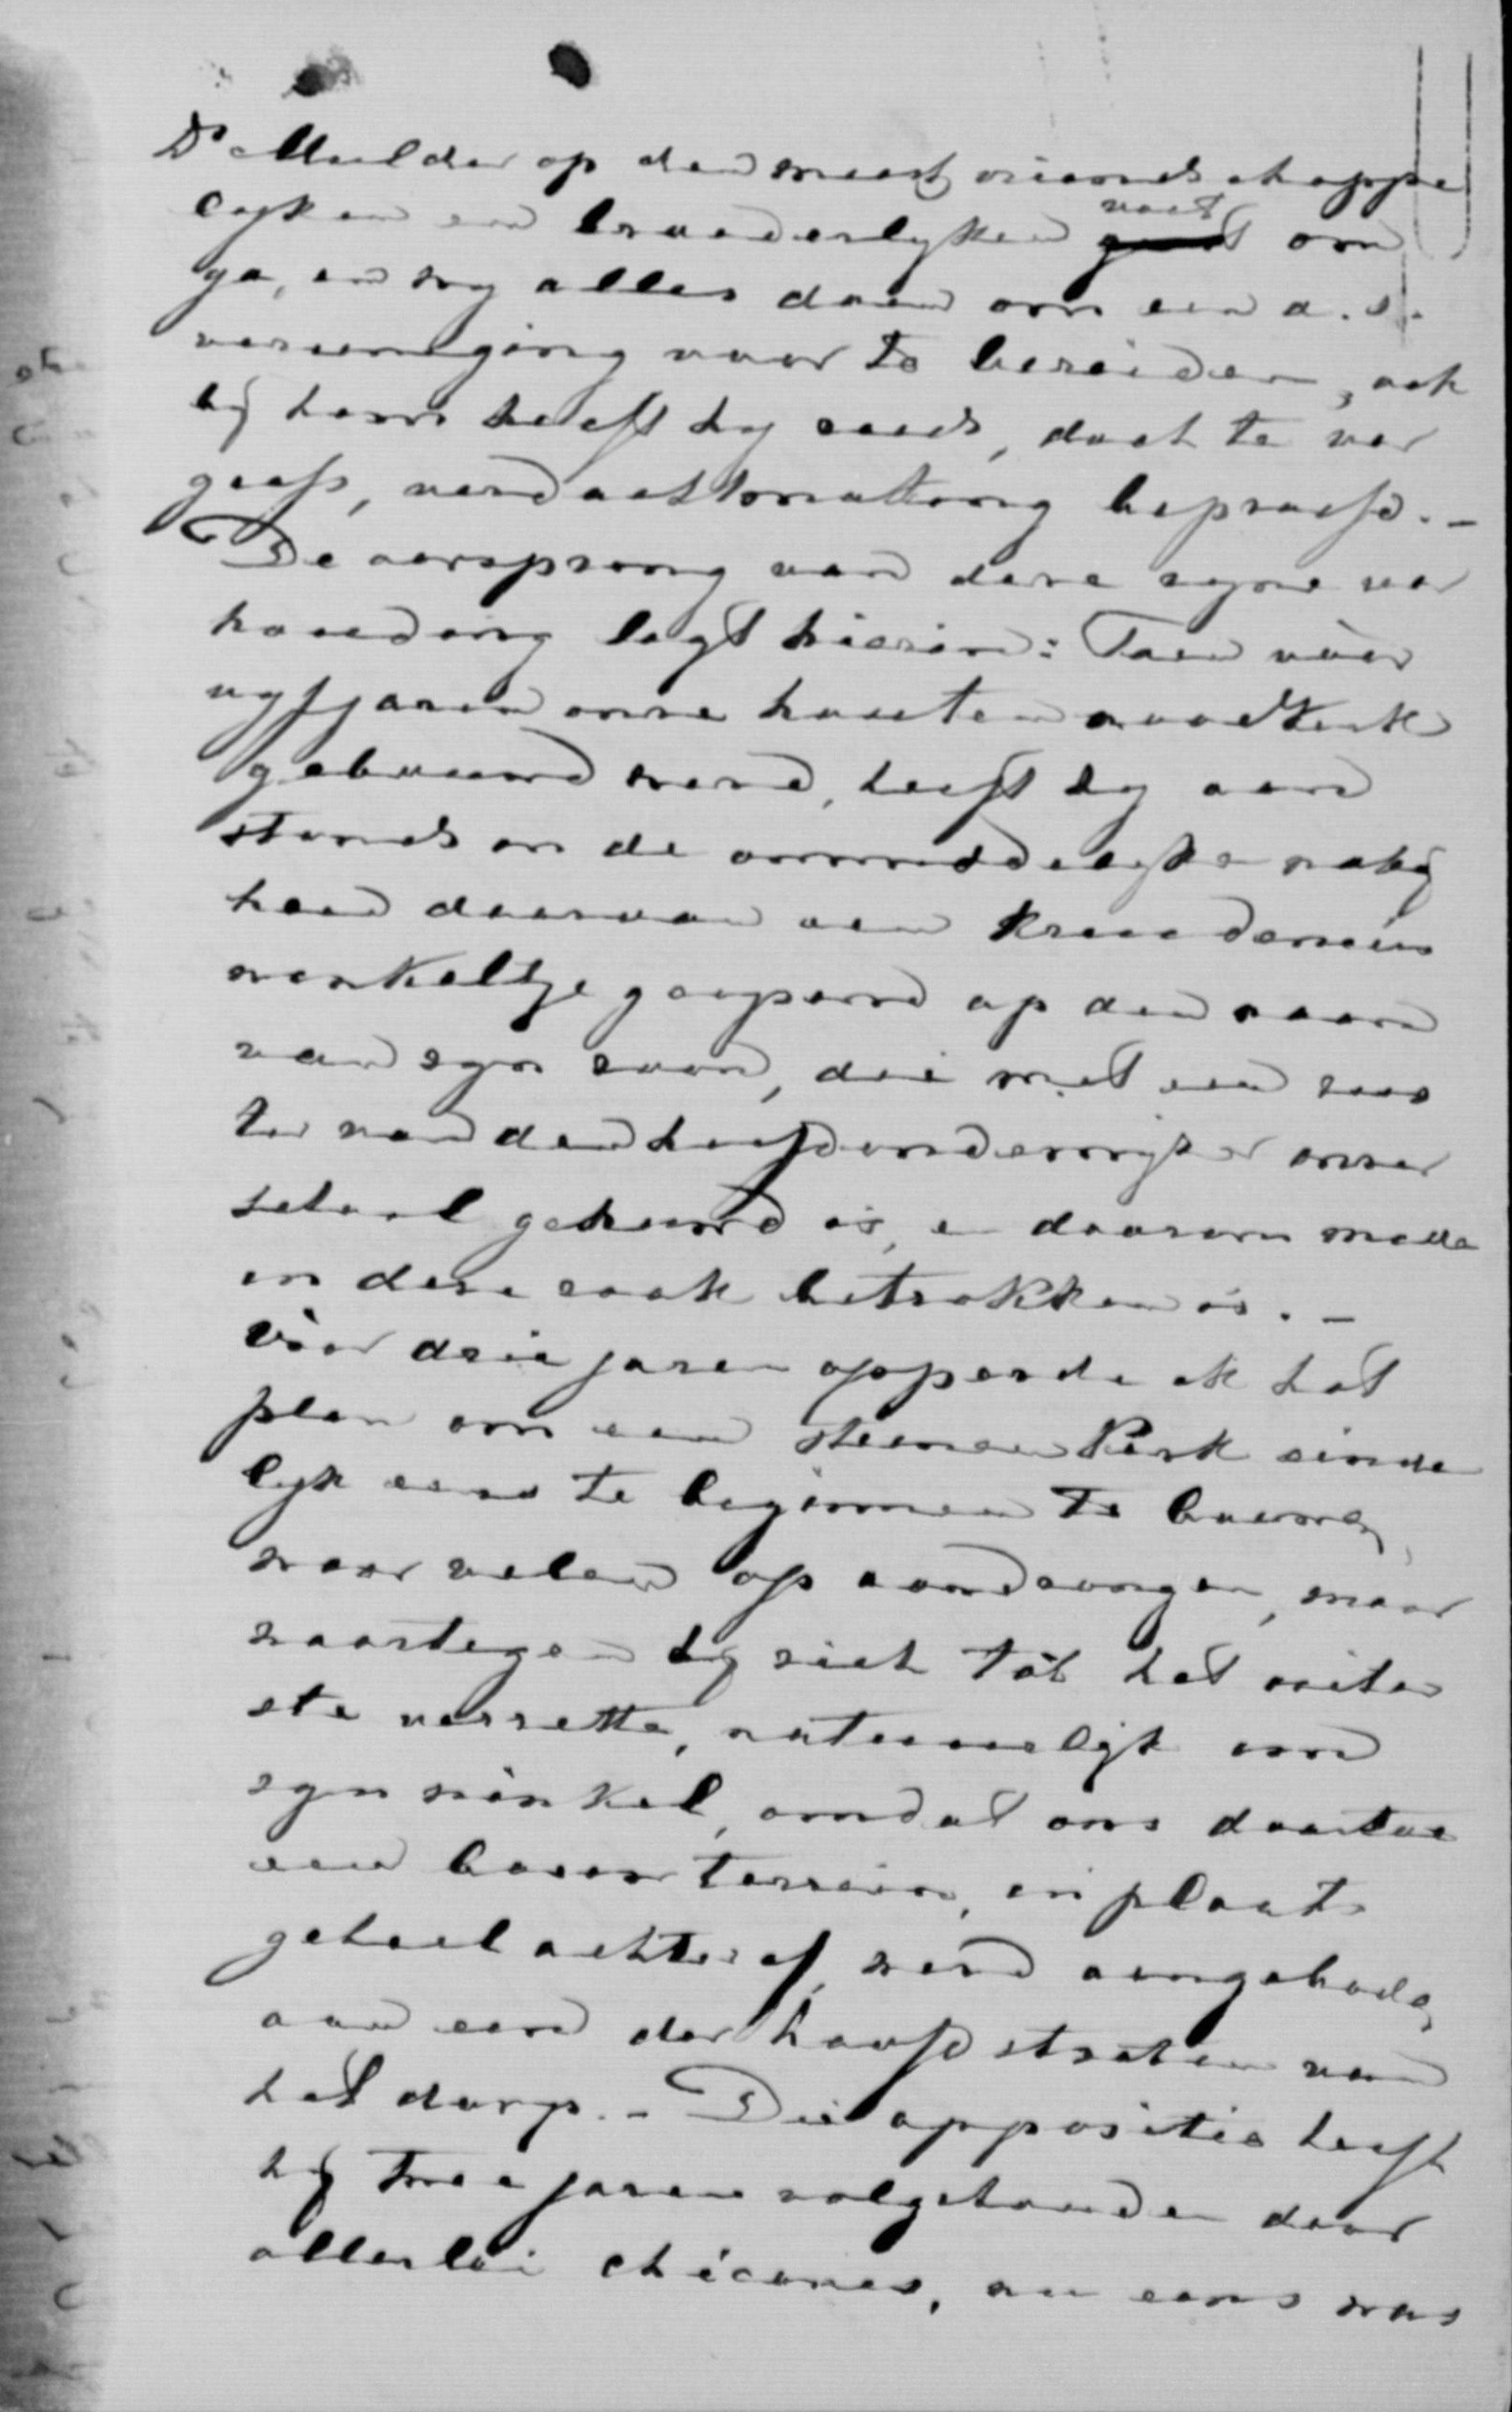 Ds Mulder op den meest vriendschappe
lyken en broederlyken voet om
ga, en wy alles doen om een a. s.
vereeniging voor te bereiden, ook
bij hem heeft hy reeds, doch te ver
geefs, verdachtmaking beproefd. -
De oorsprong van deze zyne ver
houding ligt hierin: Toen vóór
vyf jaren onze houten noodkerk
gebouwd werd, heeft hy aan
stonds in de onmiddelyke nabij
heid daarvan een kruideniers
winkeltje geopend op den naam
van zyn zoon, die met een zus
ter van den hoofdonderwijzer onzer
school gehuwd is, en daarom mede
in deze zaak betrokken is. -
Vóór drie jaren opperde ik het
plan om een steenen Kerk einde
lyk eens te beginnen te bouwen,
waar velen op aandrongen, maar
waartegen hy zich tot het uiter
ste verzette, natuurlijk om
zyn winkel, omdat ons daartoe
een bouwterrein, in plaats
geheel achteraf, werd aangeboden
aan een der hoofdstraten van
het dorp. - Die oppositie heeft
hij twee jaren volgehouden door
allerlei chicanes, nu eens was